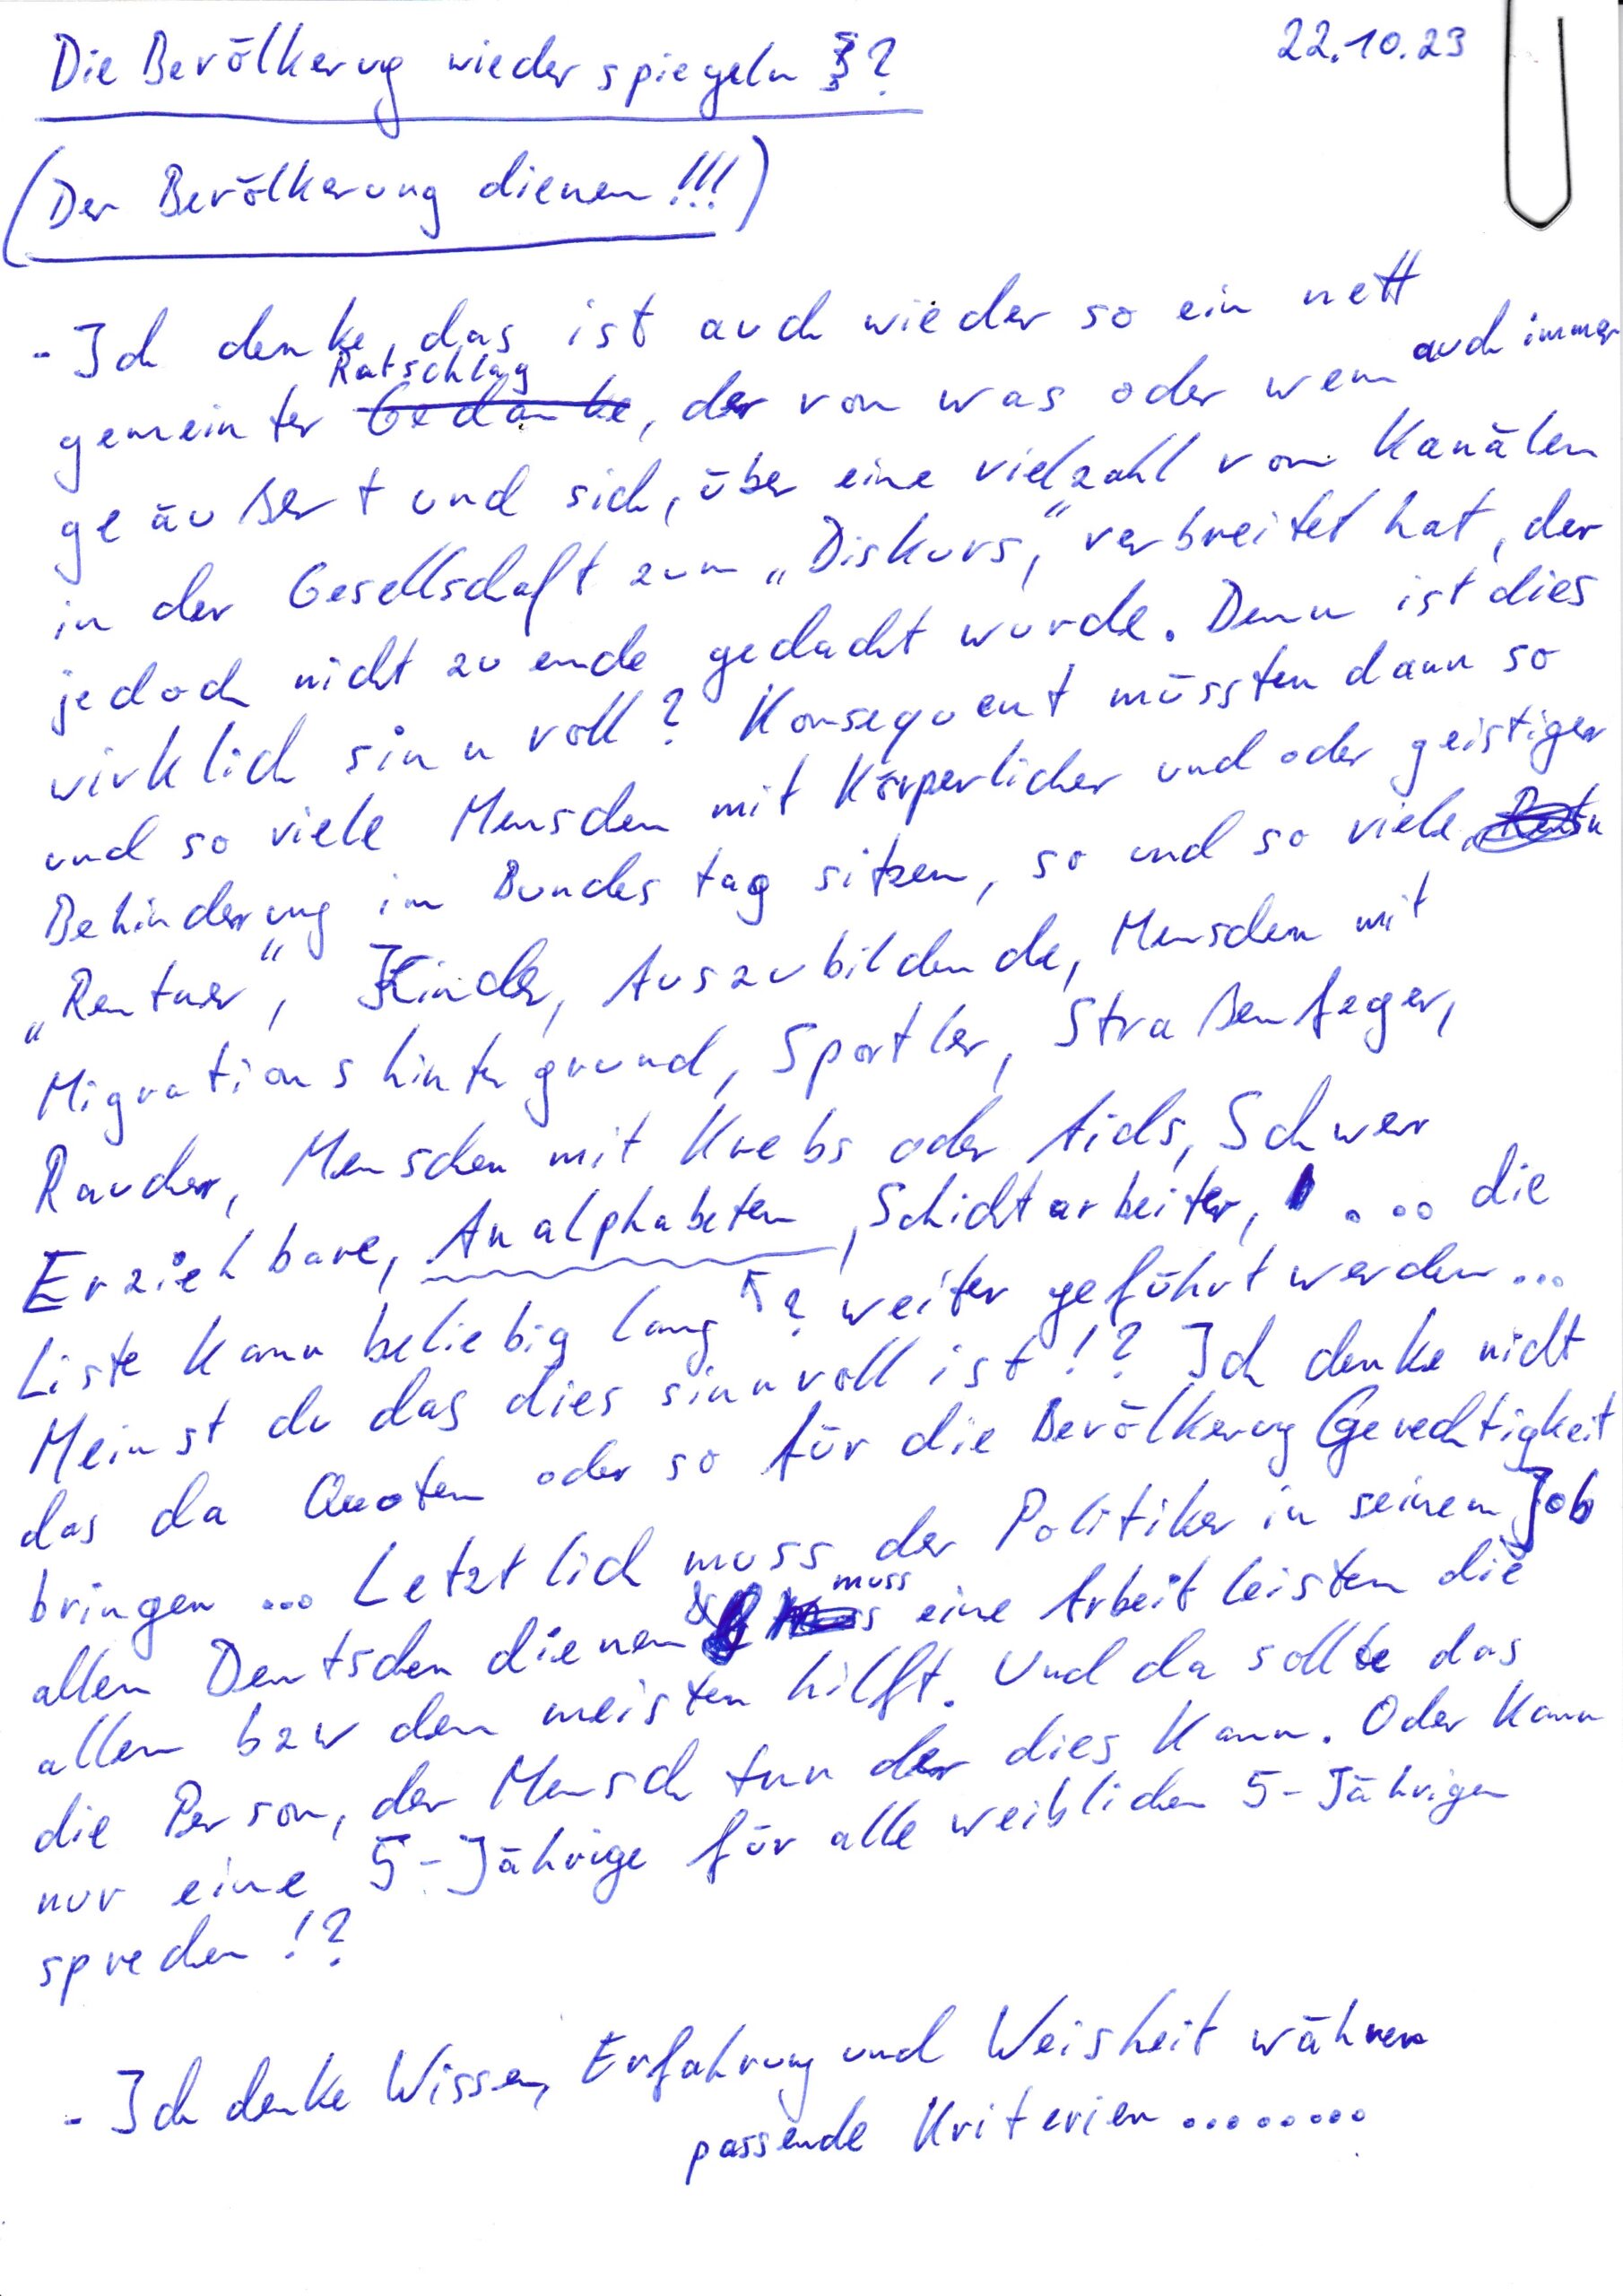 22.10.23
Die Bevölkerug wieder spiegeln ?
(Der Bevölkerung dienen!!!)
- Ich denke, das ist auch wieder so ein nett
gemeinter Ratschlag Gedanke, der von was oder wem auch immer
geäußert und sich, über eine vielzahl von Kanälen
in der Gesellschaft zum „Diskurs," verbreitet hat, der
jedoch nicht zu ende gedacht wurde. Denn ist dies
wirklich sinnvoll? Konsequent müssten dann so
und so viele Menschen mit Körperlicher und oder geistiger
Behinderung im Bundestag sitzen, so und so viele
„Rentner", Kinder, Auszubildende, Menschen mit
Migrationshintergrund, Sportler, Straßenfeger,
Raucher, Menschen mit Krebs oder Aids, Schwer
Erziehbare, Analphabeten, Schichtarbeiter, .... die
Liste kann beliebig lang ? weiter geführt werden...
Meinst du das dies sinnvoll ist!? Ich denke nicht
das da Quoten oder so für die Bevölkerug Gerechtigkeit
bringen ... Letztlich muss der Politiker in seinem Job
allen Deutschen dienen & muss eine Arbeit leisten die
allen bzw den meisten hilft. Und da sollte das
die Person, der Mensch tun der dies kann. Oder kann
nur eine 5-Jährige für alle weiblichen 5-Jährigen
sprechen!?
- Ich denke Wissen, Erfahrung und Weisheit währen
passende Kriterien .........